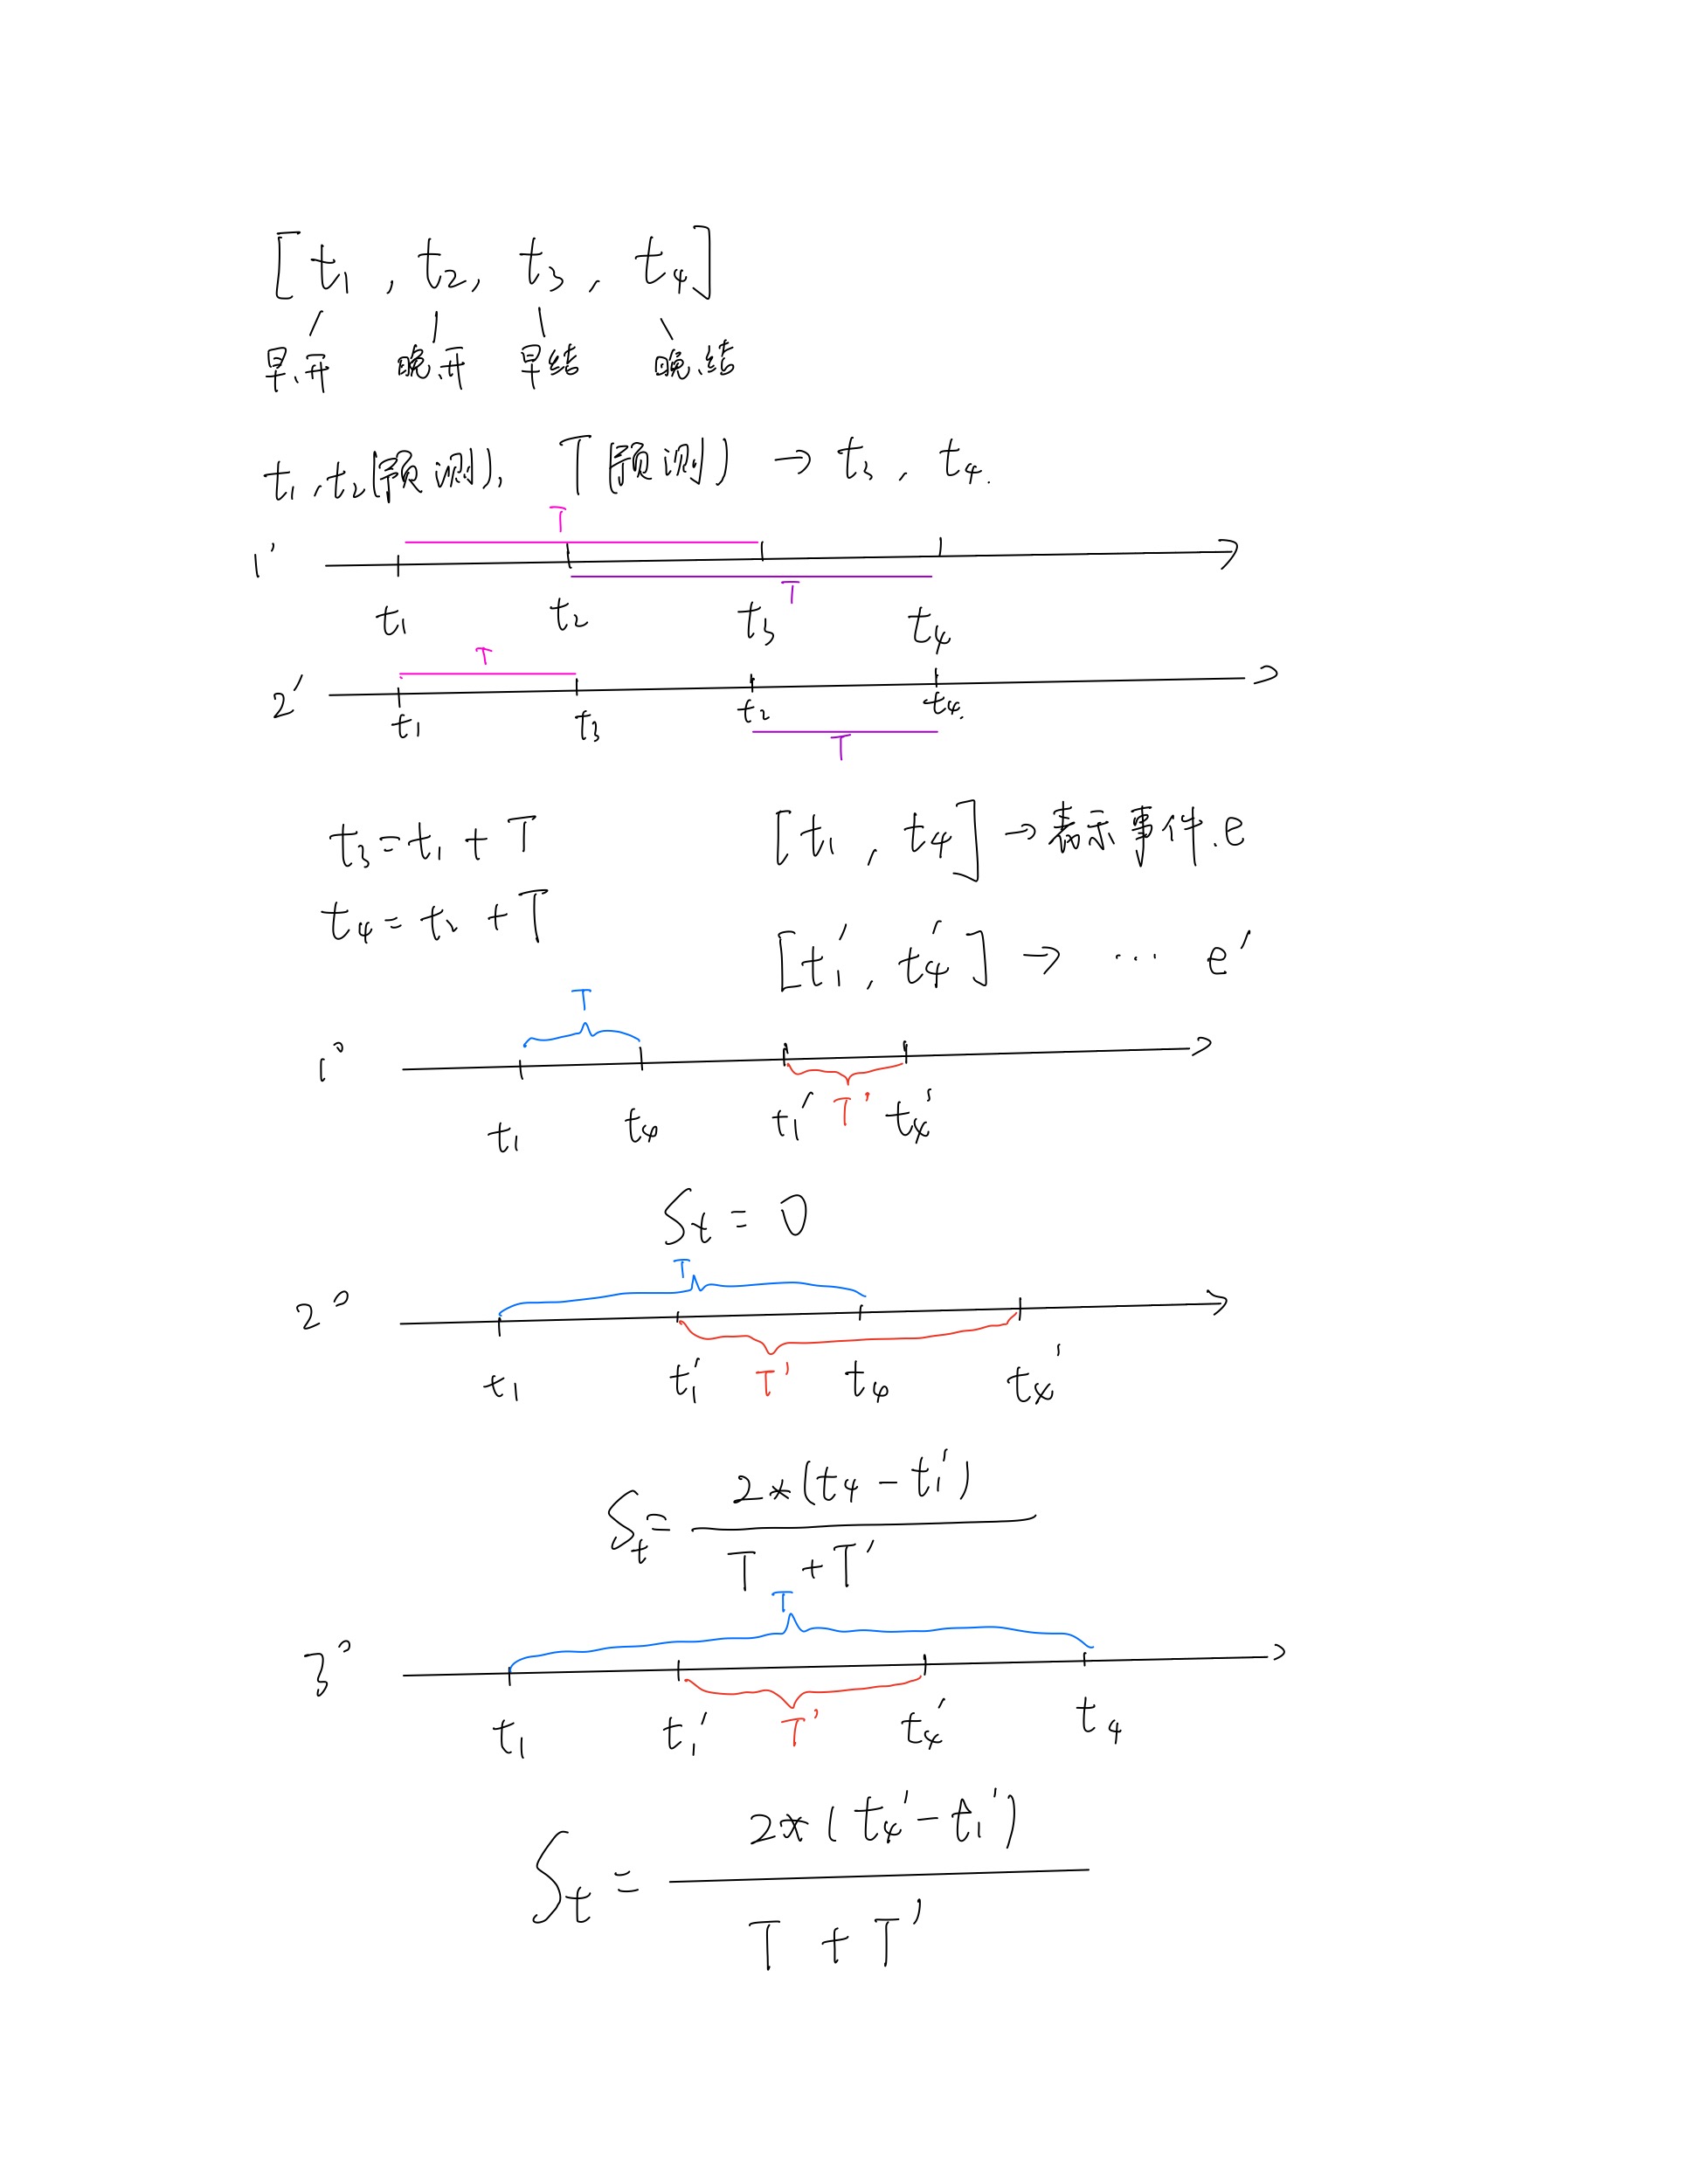 [t₁ , t₂, t₃ , t₄]
早开 晚开 早结 晚结
t₁, t₂(预测), T(预测) → t₃ , t₄.
T
1'
T
t₁ t₂ t₃ t₄
T
2'
t₁ t₃ t₂ t₄.
T
t₃ = t₁ + T
[t₁ , t₄] → 表示事件.e
t₄ = t₂ + T
[t₁', t₄'] → ... e'
T
1°
t₁ t₄ t₁' T' t₄'
St = 0
T
2°
t₁ t₁' T' t₄ t₄'
St = 2*(t₄ - t₁') / T + T'
T
3°
t₁ t₁' T' t₄' t₄
St = 2*(t₄' - t₁') / T + T'